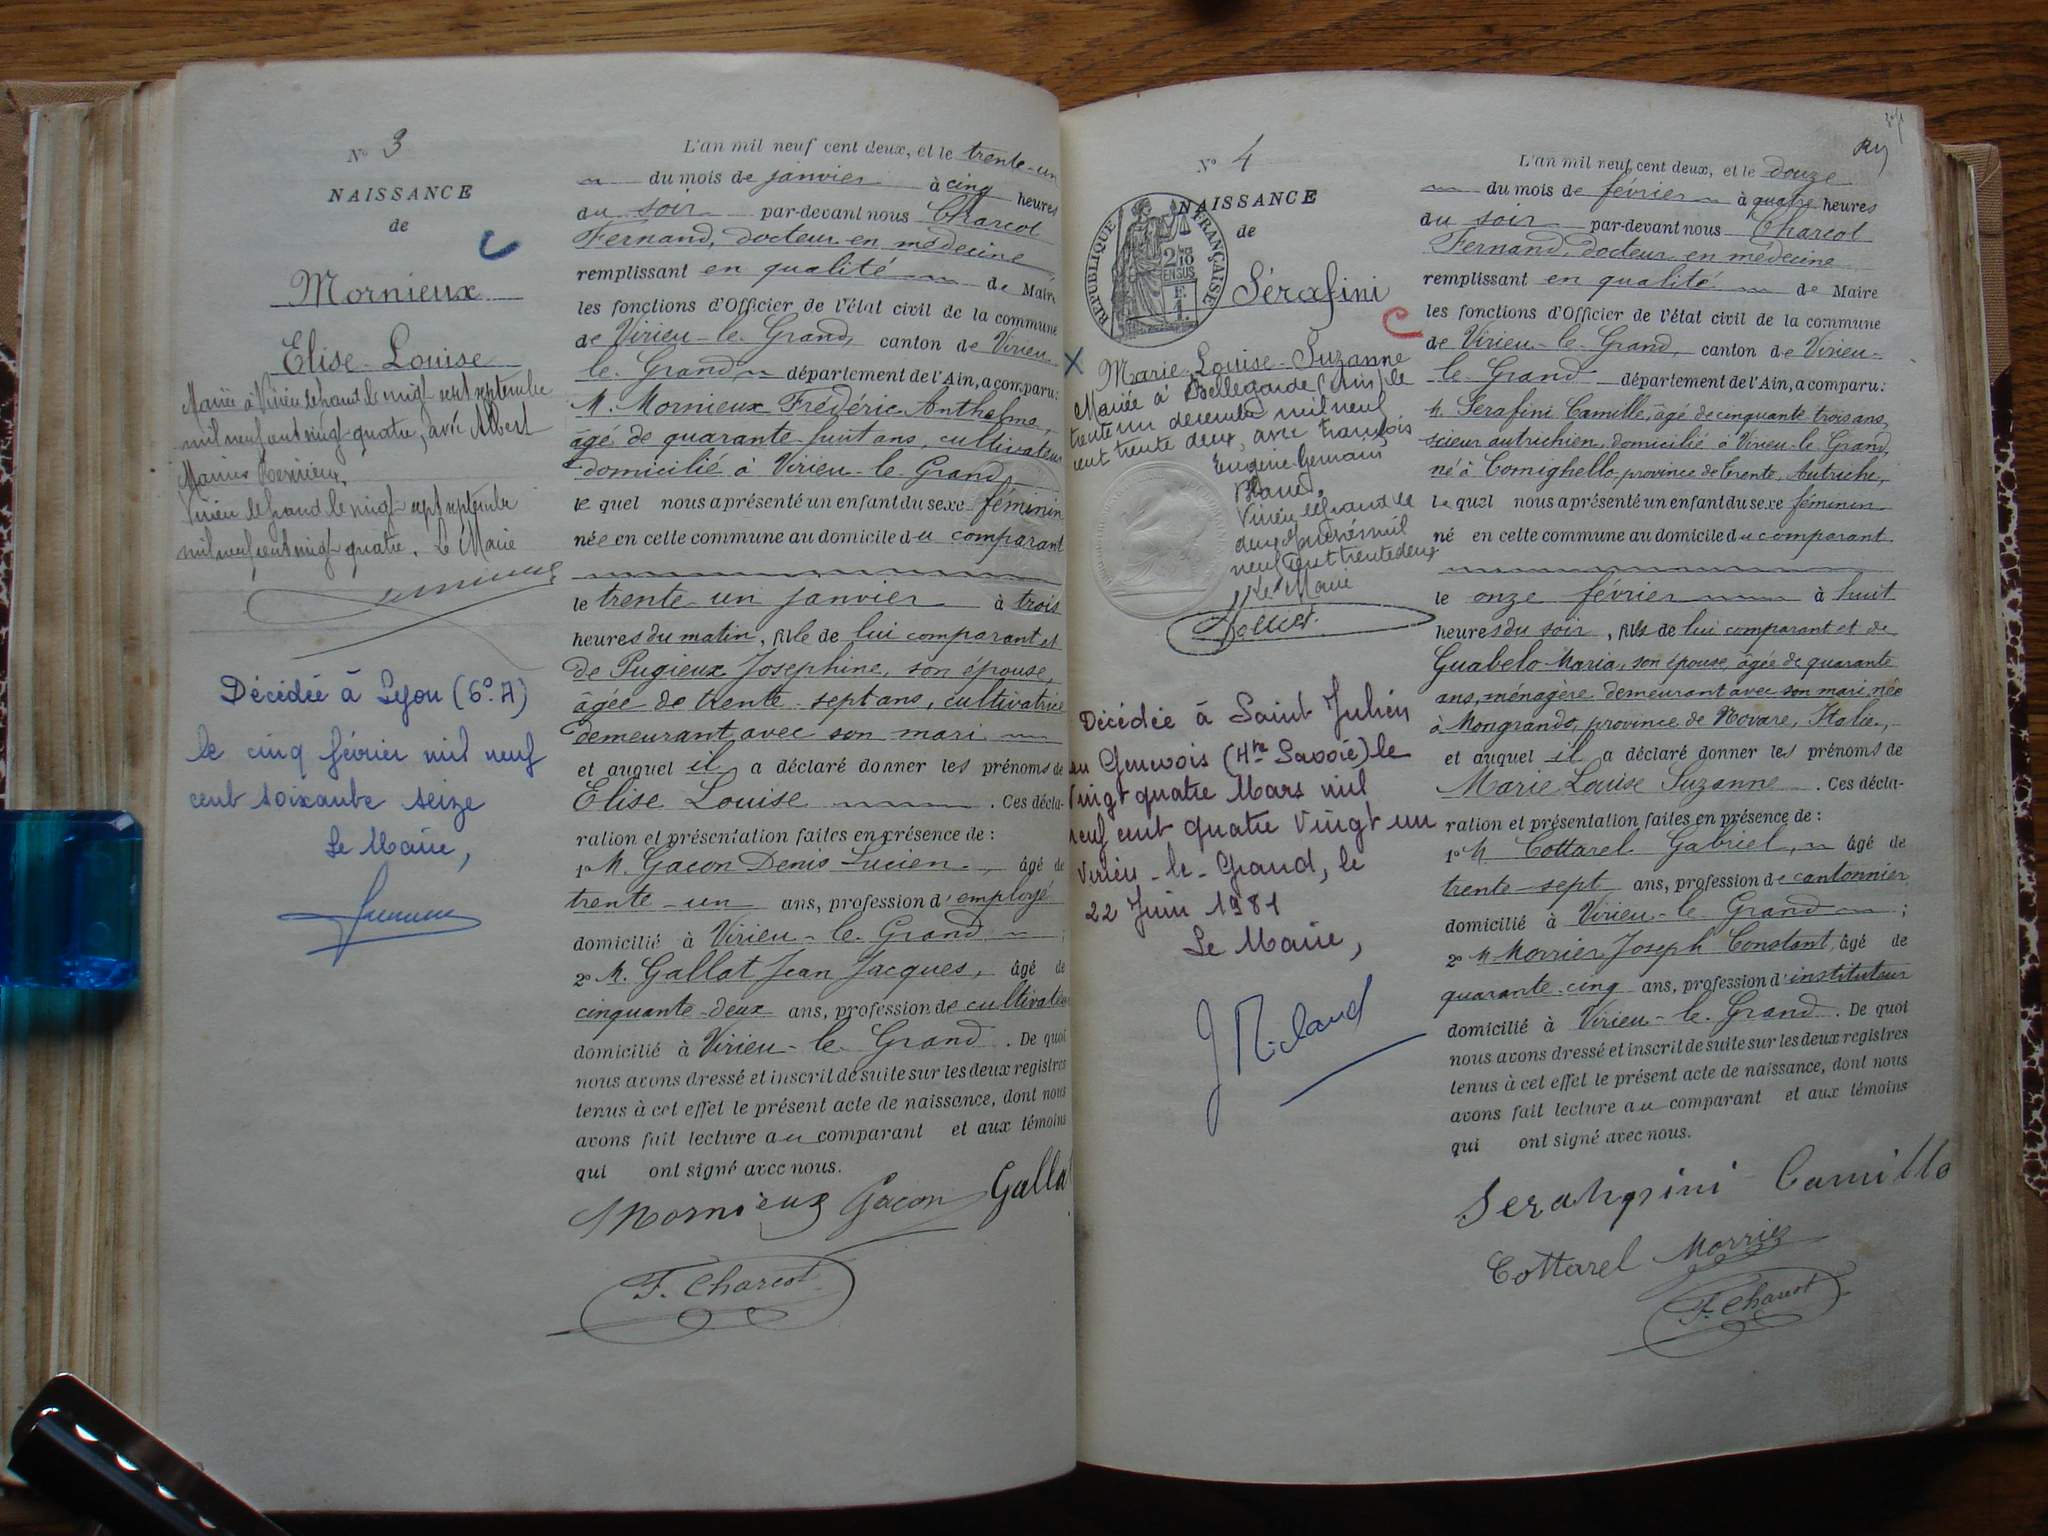 Nº 3
NAISSANCE
de
Mornieux
Elise-Louise
Mariée à Virieu le Grand le vingt sept septembre
mil neuf cent vingt-quatre, avec Albert
Marius
Virieu le Grand le vingt-sept septembre
mil neuf cent vingt-quatre. Le Maire
Décédée à Lyon (6º A)
le cinq février mil neuf
cent soixante seize
Le Maire,
L'an mil neuf cent deux, et le trente-un
du mois de janvier à cinq heures
du soir par-devant nous Charcot
Fernand, docteur en médecine
remplissant en qualité de Maire
les fonctions d'Officier de l'état civil de la commune
de Virieu-le-Grand, canton de Virieu-
le-Grand département de l'Ain, a comparu:
M. Mornieux Frédéric Anthelme,
âgé de quarante-huit ans, cultivateur
domicilié à Virieu-le-Grand
le quel nous a présenté un enfant du sexe féminin
née en cette commune au domicile du comparant
le trente-un janvier à trois
heures du matin, fille de lui comparant et
de Pugieux Josephine, son épouse,
âgée de trente-sept ans, cultivatrice
demeurant avec son mari
et auquel il a déclaré donner les prénoms de
Elise Louise . Ces décla-
ration et présentation faites en présence de :
1º M. Gacon Denis Lucien, âgé de
trente-un ans, profession d'employé
domicilié à Virieu-le-Grand ;
2º M. Gallat Jean Jacques, âgé de
cinquante-deux ans, profession de cultivateur
domicilié à Virieu-le Grand . De quoi
nous avons dressé et inscrit de suite sur les deux registres
tenus à cet effet le présent acte de naissance, dont nous
avons fait lecture au comparant et aux témoins
qui ont signé avec nous.
Mornieux Gacon Galla
F. Charcot
Nº 4
NAISSANCE
de
RÉPUBLIQUE FRANÇAISE
2/10 EN SUS
Sérafini
Marie-Louise-Suzanne
Mariée à Bellegarde (Ain) le
trente un decembre mil neuf
cent trente deux, avec François
Eugène Germain
Blanc.
Virieu le Grand le
mil
neuf cent trente deux
Le Maire
Décédée à Saint Julien
en Genevois (Hte Savoie) le
Vingt quatre Mars mil
neuf cent quatre Vingt un
Virieu-le-Grand, le
22 Juin 1981
Le Maire,
L'an mil neuf cent deux, et le douze
du mois de février à quatre heures
du soir par-devant nous Charcot
Fernand, docteur en médecine
remplissant en qualité de Maire
les fonctions d'Officier de l'état civil de la commune
de Virieu-le-Grand, canton de Virieu-
le-Grand département de l'Ain, a comparu:
M. Serafini Camille, âgé de cinquante trois ans,
scieur autrichien, domicilié à Virieu-le-Grand,
né à Comighello, province de Trente, Autriche,
le quel nous a présenté un enfant du sexe féminin
né en cette commune au domicile du comparant
le onze février à huit
heures du soir, fille de lui comparant et de
Guabelo Maria, son épouse, âgée de quarante
ans, ménagère demeurant avec son mari, née
à Mongrando, province de Novare, Italie,
et auquel il a déclaré donner les prénoms de
Marie Louise Suzanne . Ces décla-
ration et présentation faites en présence de :
1º M. Cottarel Gabriel, âgé de
trente-sept ans, profession de cantonnier
domicilié à Virieu-le-Grand ;
2º M. Morrier Joseph Constant, âgé de
quarante-cinq ans, profession d'instituteur
domicilié à Virieu-le-Grand. De quoi
nous avons dressé et inscrit de suite sur les deux registres
tenus à cet effet le présent acte de naissance, dont nous
avons fait lecture au comparant et aux témoins
qui ont signé avec nous.
Camillo
Cottarel Morrier
F. Charcot